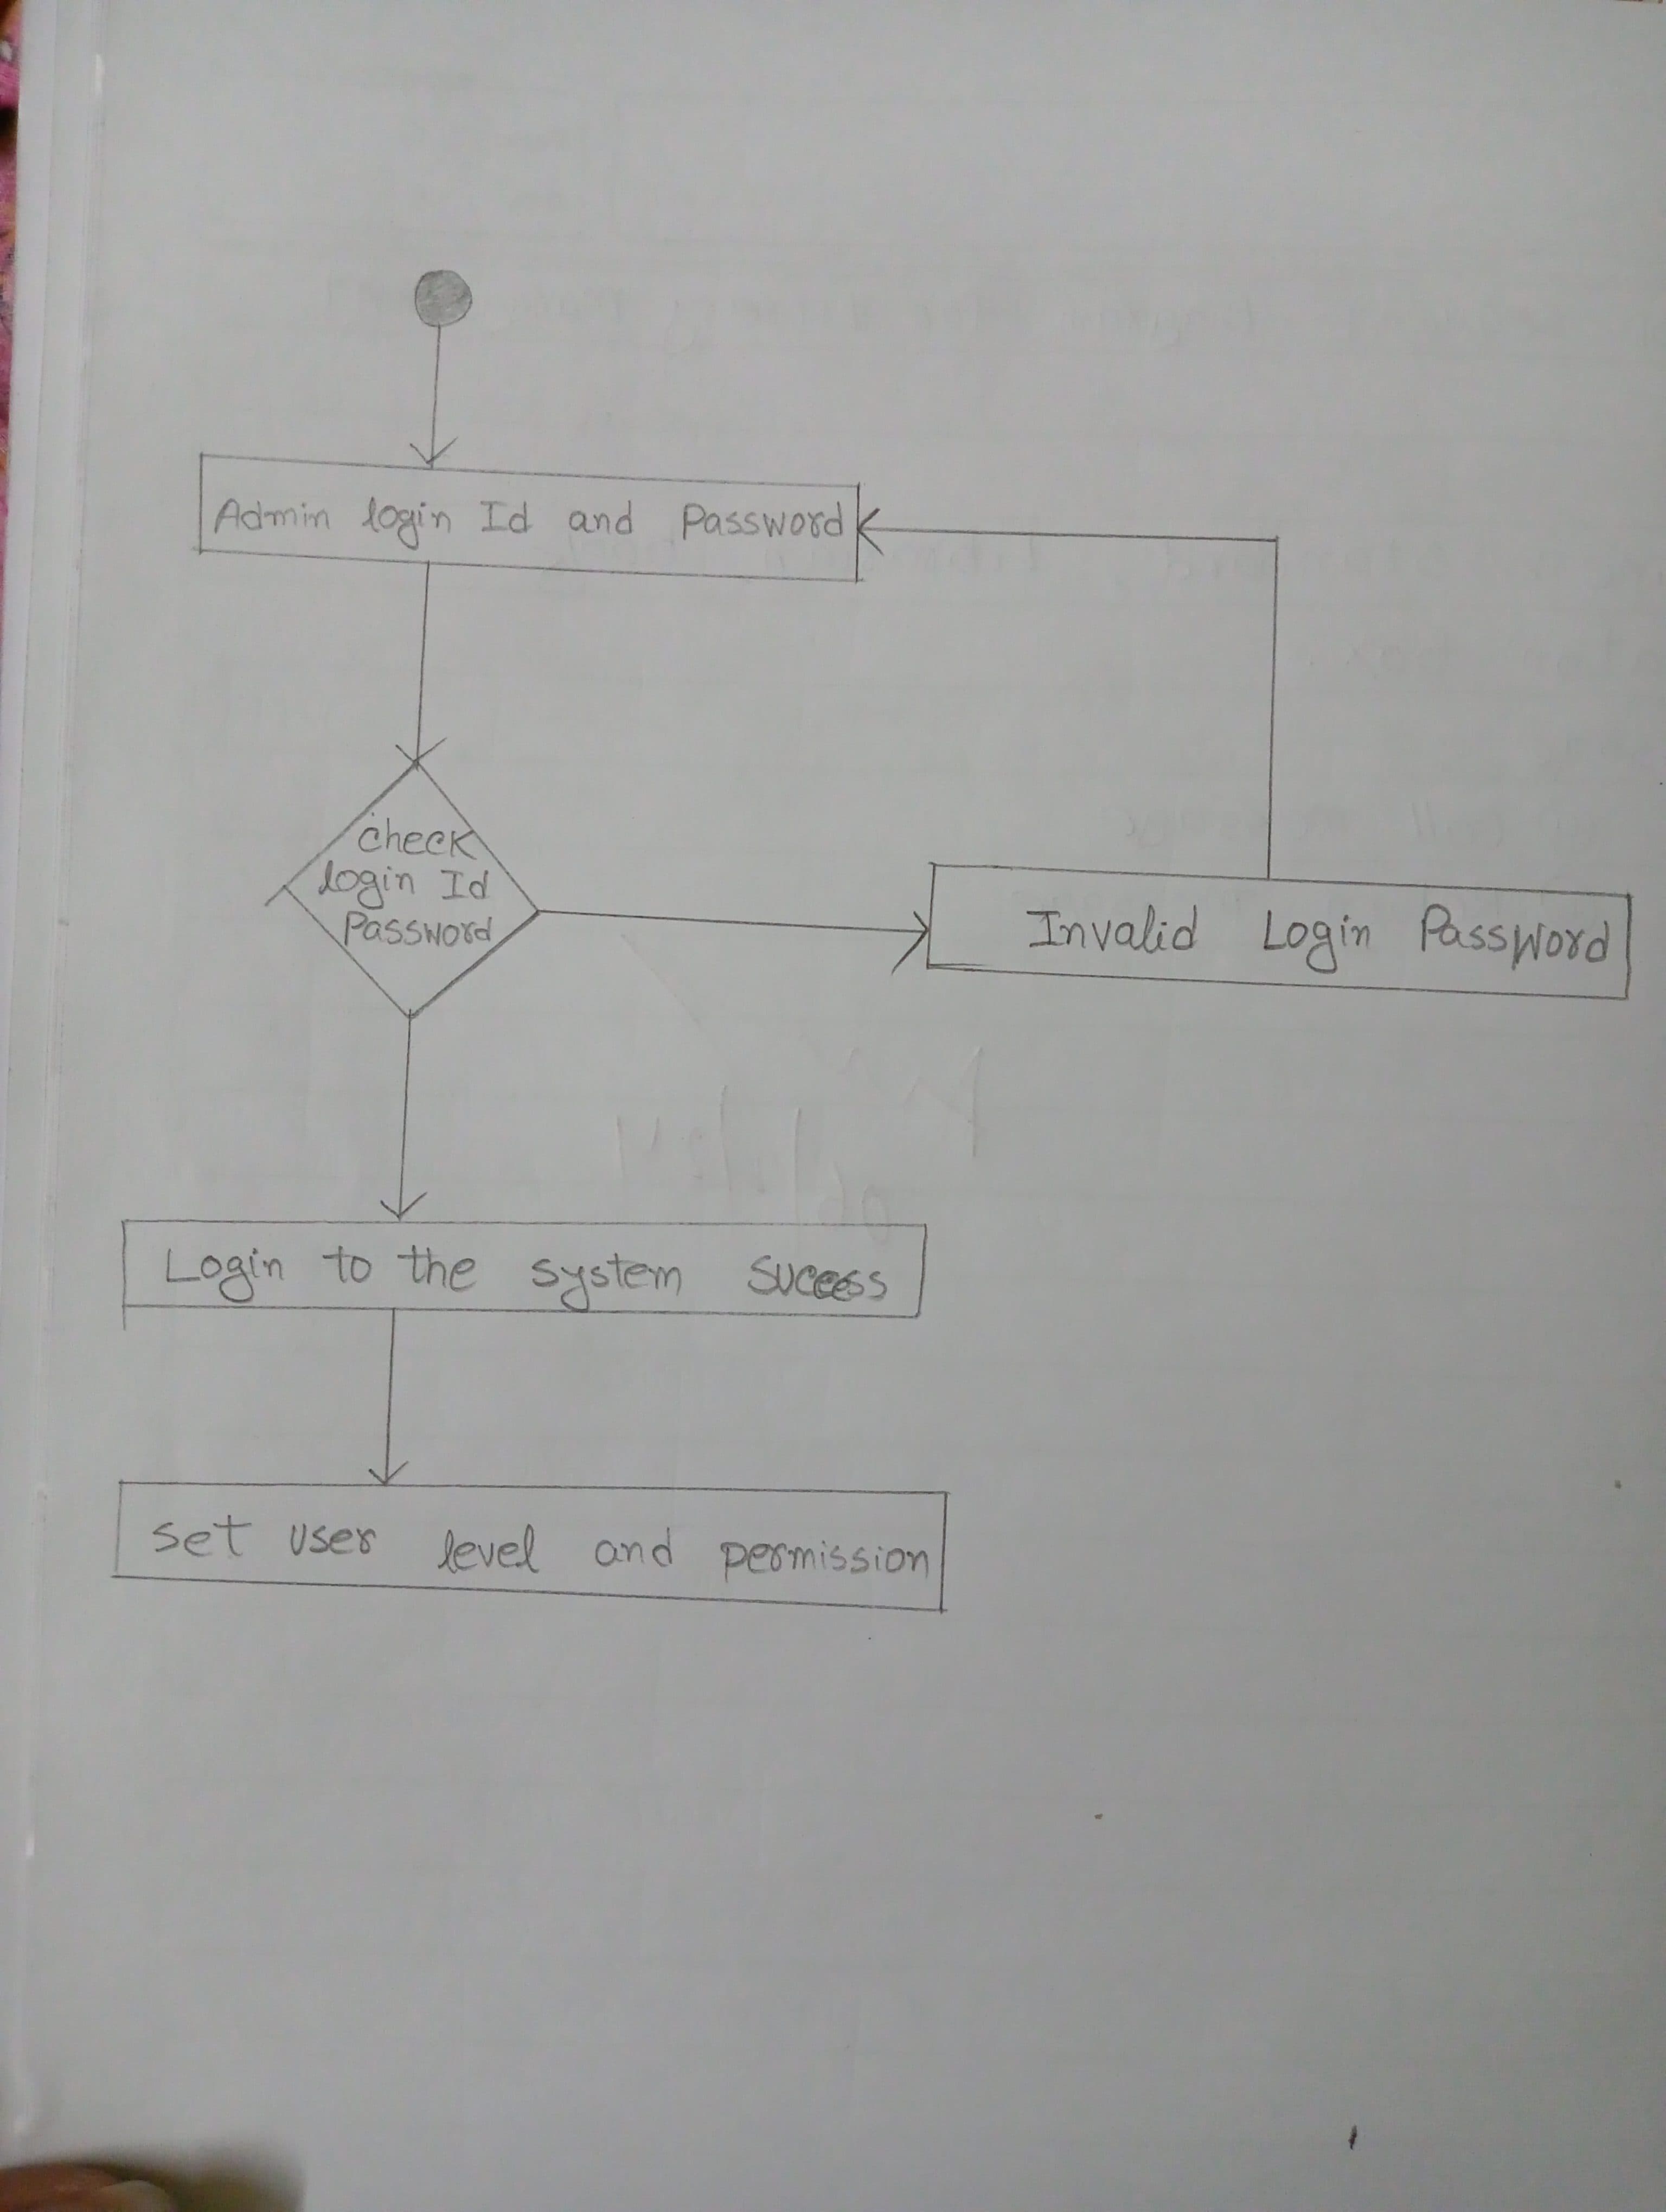 Admin login Id and Password
check
login Id
Password
Invalid Login Password
Login to the system sucess
set user level and permission